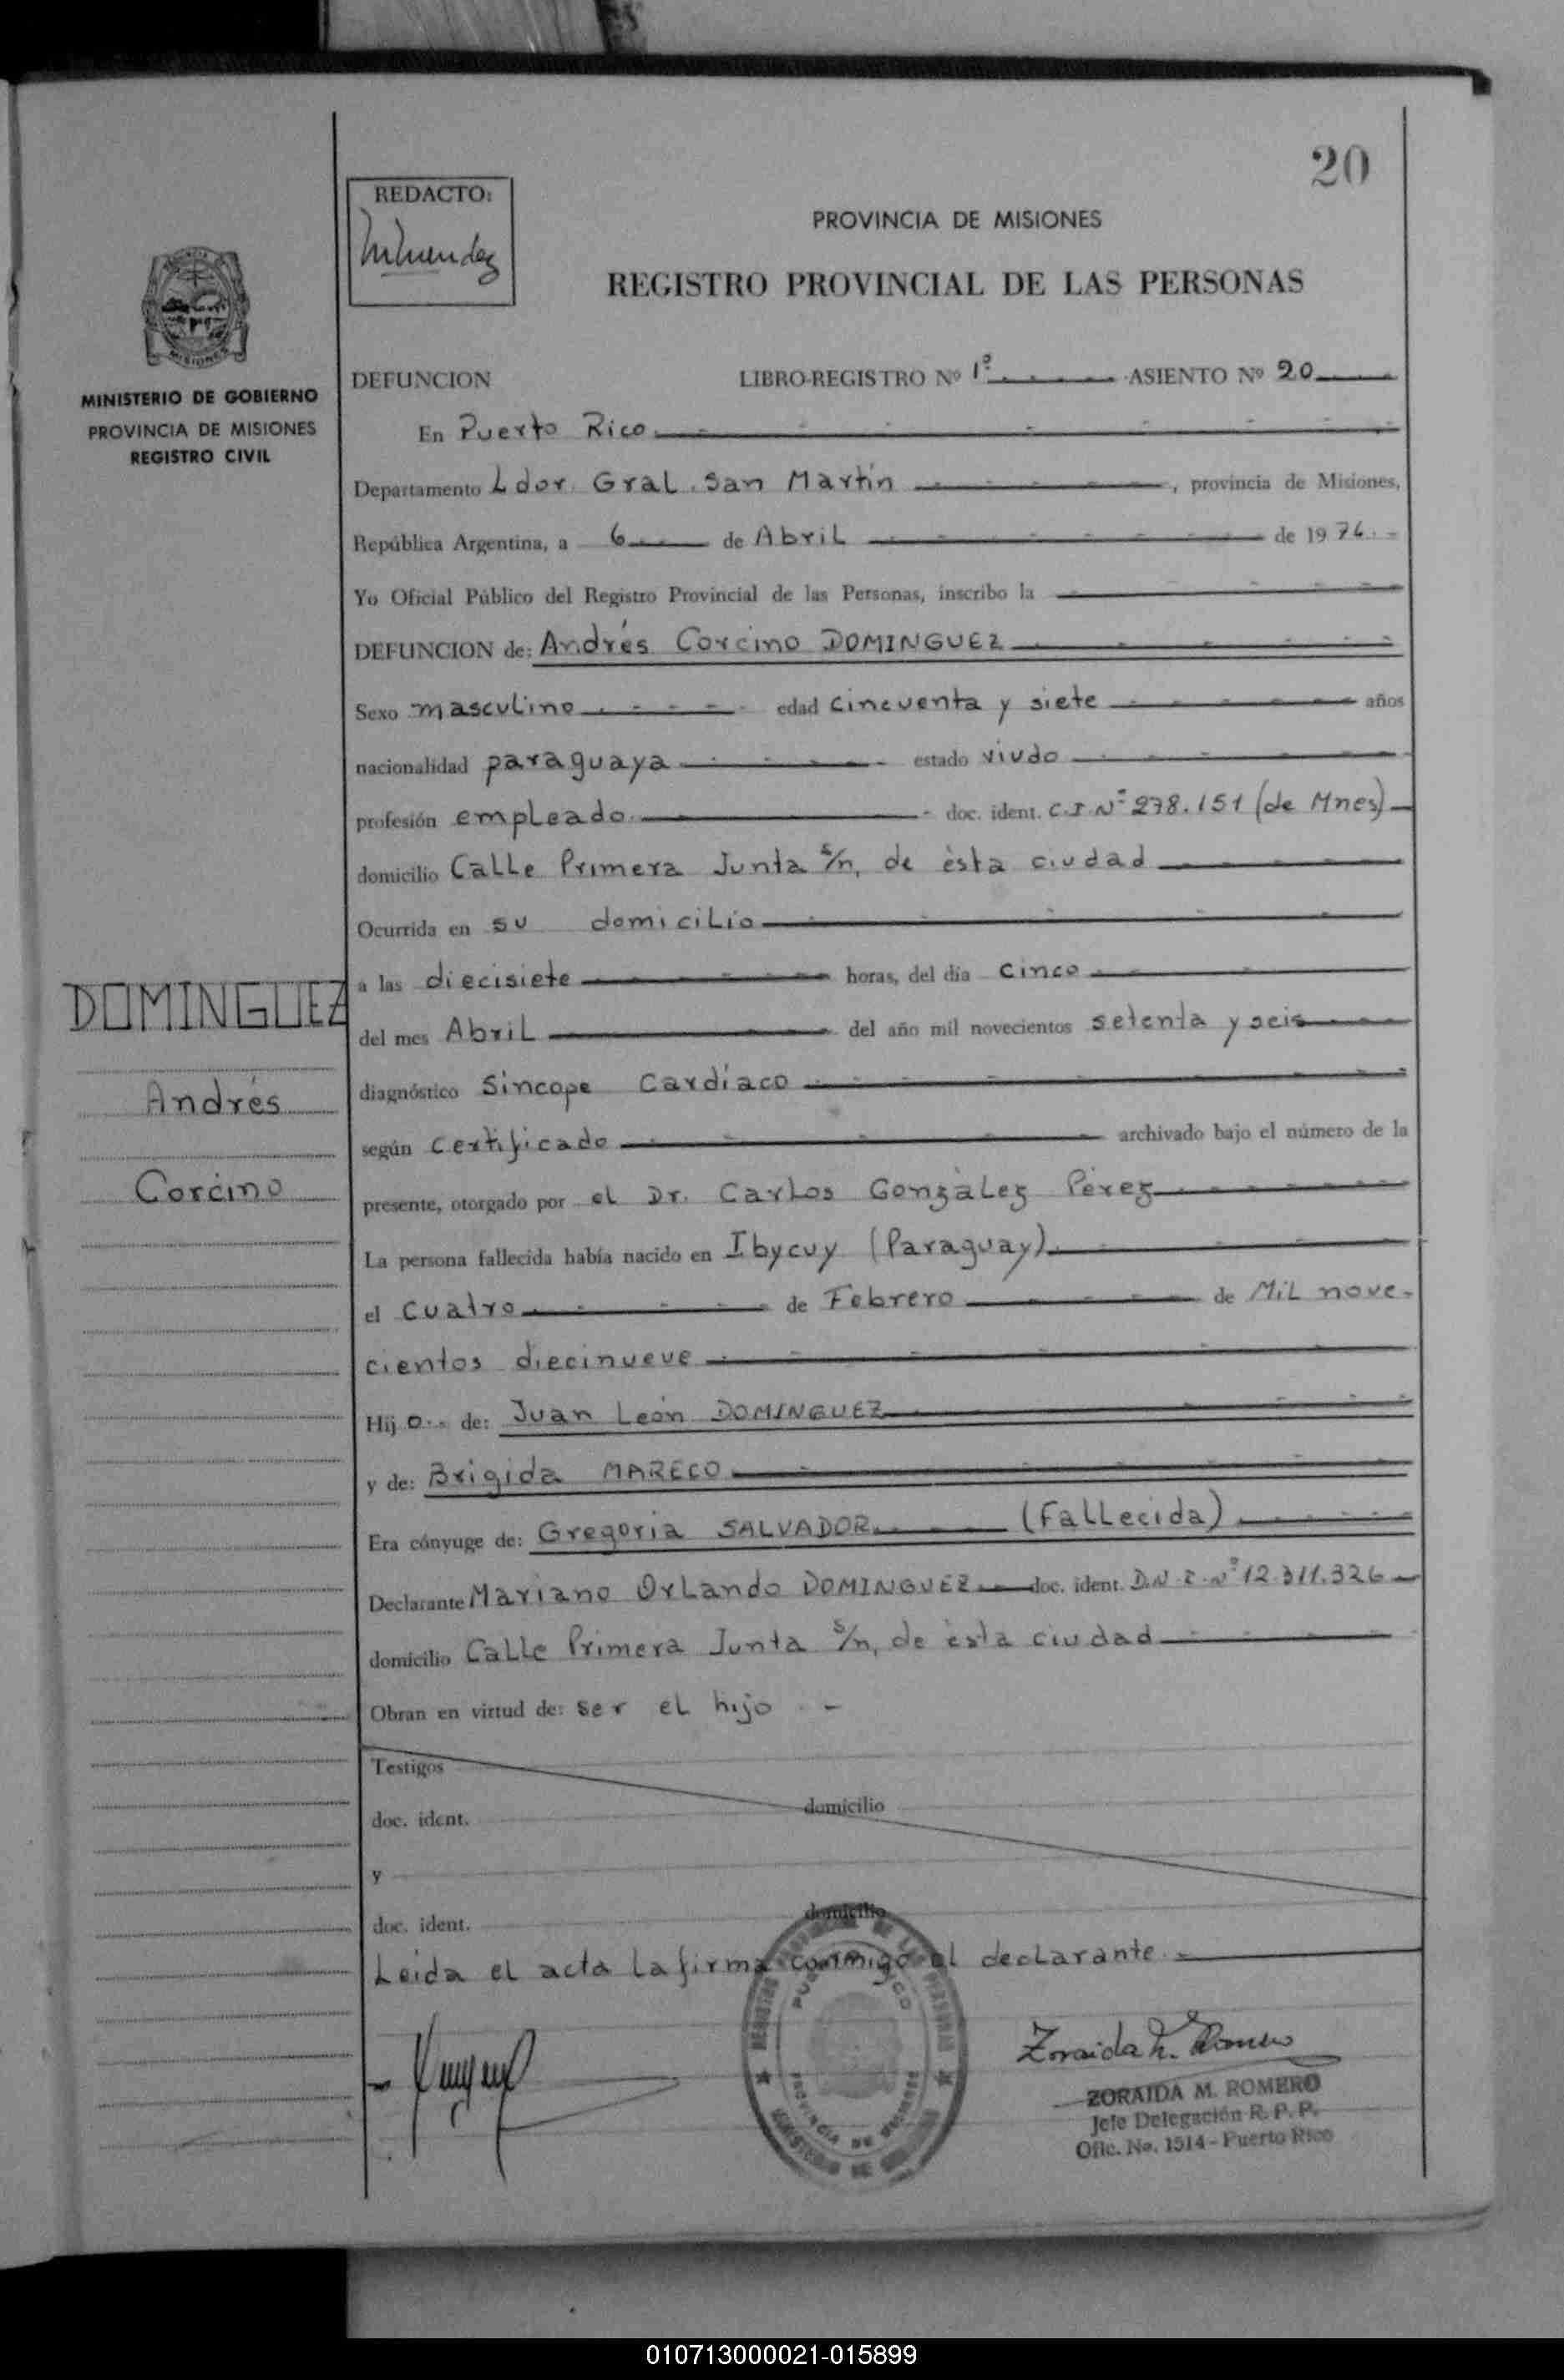 20
REDACTO:
PROVINCIA DE MISIONES
REGISTRO PROVINCIAL DE LAS PERSONAS
MISIONES
MINISTERIO DE GOBIERNO
PROVINCIA DE MISIONES
REGISTRO CIVIL
DEFUNCION LIBRO-REGISTRO Nº 1º ASIENTO Nº 20
En Puerto Rico
Departamento Ldor. Gral. San Martín, provincia de Misiones,
República Argentina, a 6 de Abril de 1976.-
Yo Oficial Público del Registro Provincial de las Personas, inscribo la
DEFUNCION de: Andrés Corcino DOMINGUEZ
Sexo masculino edad cincuenta y siete años
nacionalidad paraguaya estado viudo
profesión empleado. doc. ident. C.I.Nº 278.151 (de Mnes)
domicilio Calle Primera Junta s/n, de ésta ciudad
Ocurrida en su domicilio
a las diecisiete horas, del día cinco
del mes Abril del año mil novecientos setenta y seis
diagnóstico Síncope Cardíaco
según certificado archivado bajo el número de la
presente, otorgado por el Dr. Carlos González Pérez
La persona fallecida había nacido en Ibycuy (Paraguay)
el cuatro de Febrero de Mil nove-
cientos diecinueve
Hijo.- de: Juan León DOMINGUEZ
y de: Brígida MARECO
Era cónyuge de: Gregoria SALVADOR (Fallecida)
Declarante Mariano Orlando DOMINGUEZ doc. ident. D.N.I.Nº 12.311.326
domicilio Calle Primera Junta s/n, de ésta ciudad
Obran en virtud de: ser el hijo.-
Testigos
doc. ident. domicilio
y
doc. ident. domicilio
Leída el acta la firma conmigo el declarante.-
DOMINGUEZ
Andrés
Corcino
PROVINCIA DE MISIONES
Zoraida M. Romero
ZORAIDA M. ROMERO
Jefe Delegación R. P. P.
Ofic. No. 1514 - Puerto Rico
010713000021-015899